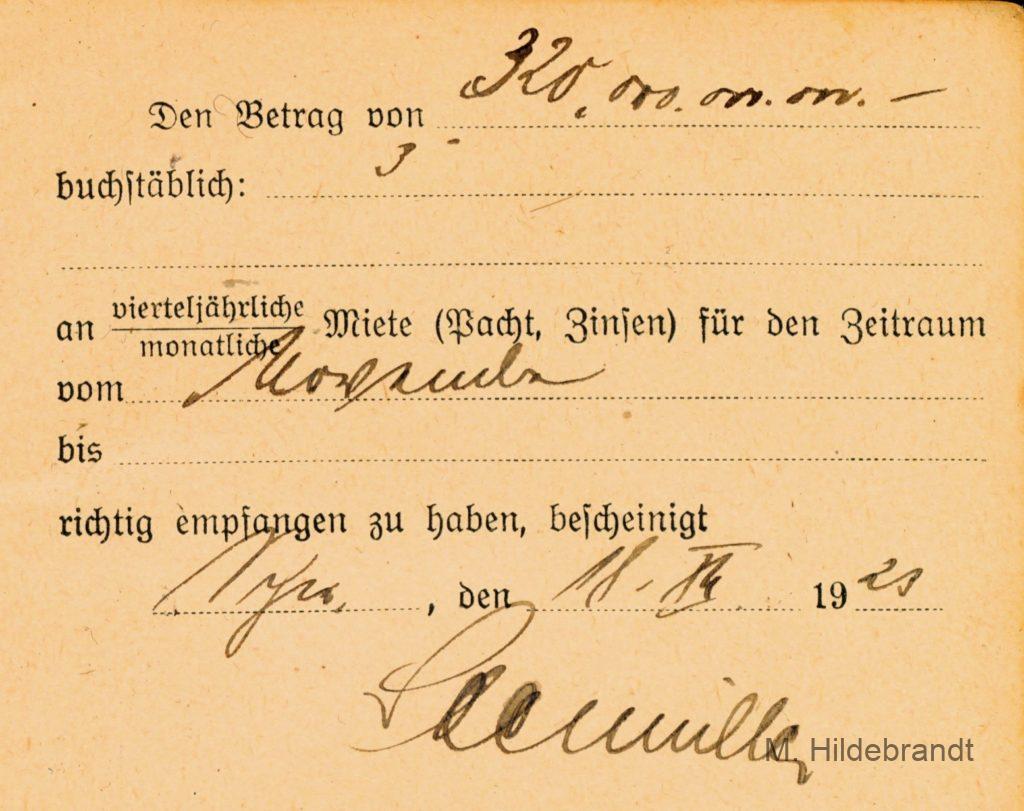 Den Betrag von 320,000.000.000. —
buchstäblich:
an vierteljährliche
monatliche Miete (Pacht, Zinsen) für den Zeitraum
vom November
bis
richtig empfangen zu haben, bescheinigt
, den 18. XI 1923
Seemiller
M. Hildebrandt